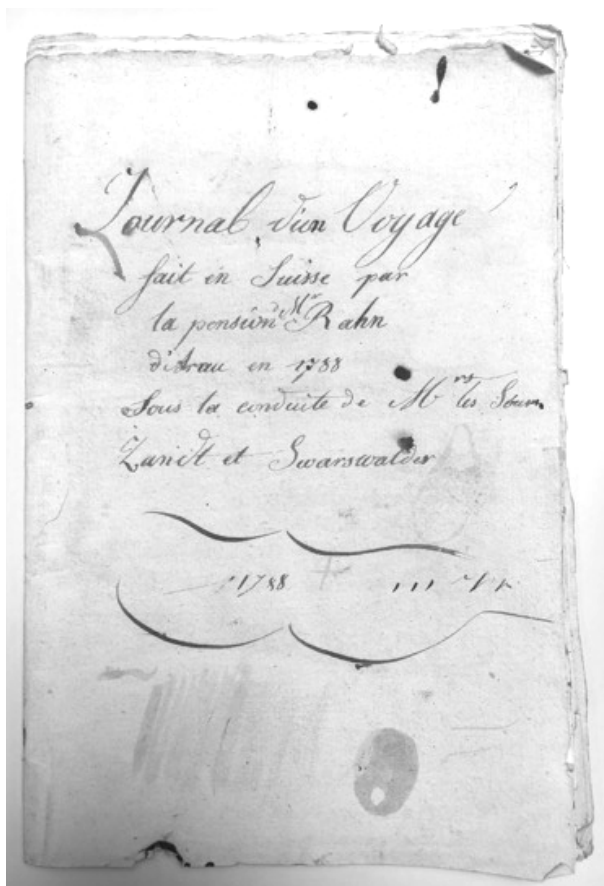 Journal d'un Voyage
fait en Suisse par
la pension Mr Rahn
d'Arau en 1788
Sous la conduite de Mrs les
et Swarswalder
1788